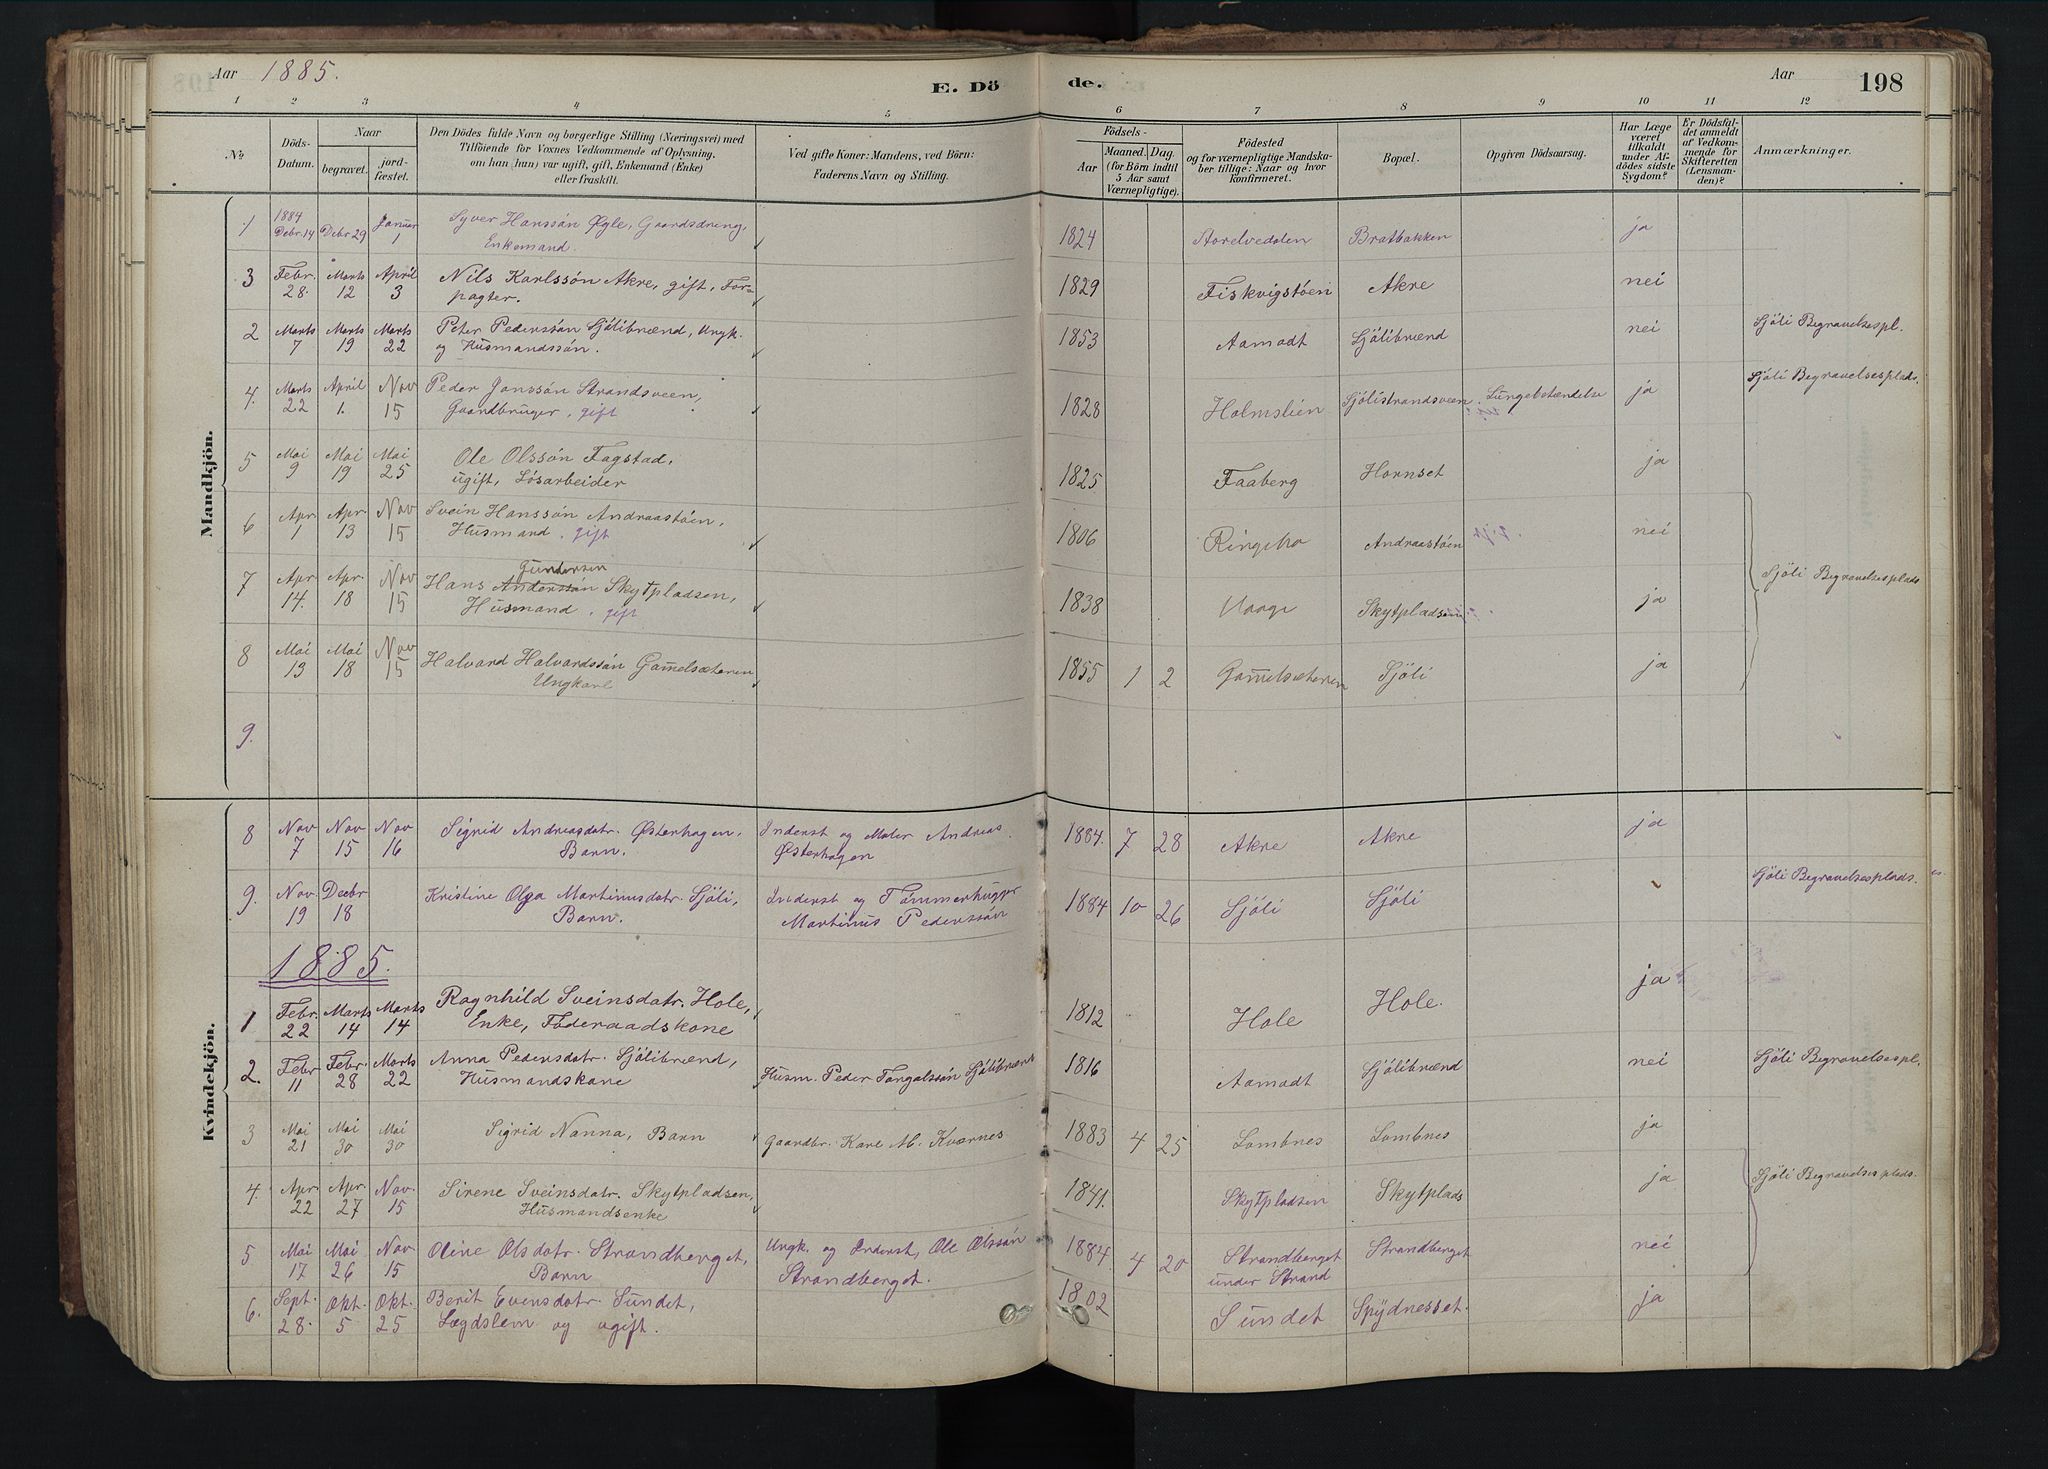 Aar 1885. E. Dö de. Aar 198
1 2 3 4 5 6 7 8 9 10 11 12
No
Döds-Datum.
Naar
begravet.
jord-fæstet.
Den Dödes fulde Navn og borgerlige Stilling (Næringsvei) med
Tilföiende for Voxnes Vedkommende af Oplysning,
om han (hun) var ugift, gift, Enkemand (Enke)
eller fraskilt.
Ved gifte Koner: Mandens, ved Börn:
Faderens Navn og Stilling.
Födsels-
Aar
Maaned. Dag.
(for Börn indtil
5 Aar samt
Værnepligtige).
Födested
og for værnepligtige Mandska-
ber tillige: Naar og hvor
konfirmeret.
Bopæl.
Opgiven Dödsaarsag.
Har Læge
været
tilkaldt
under Af-
dödes sidste
Sygdom?
Er Dödsfal-
det anmeldt
af Vedkom-
mende for
Skifteretten
(Lensman-
den)?
Anmærkninger.
Mandkjön.
1 1884 Debr. 14 Debr 29 Januar 1 Syver Hanssön Øgle, Gaardsdreng, Enkemand. 1824 Bratbakken ja
3 Febr. 28. Marts 12 April 3 Nils Karlssön Akre, gift, Forpagter. 1829 Fiskvigstöen Akre nei
2 Marts 7 Marts 19 Marts 22 Peter Pederssön Sjölibrænd, Ungk. og Husmandssön. 1853 Aamodt Sjölibrænd nei Sjöli Begravelsespl.
4. Marts 22 April 1. Nov 15 Peder Jonssön Strandsveen, Gaardbruger, gift 1828 Holmslien Sjölistrandsveen Lungebetændelse ja Sjöli Begravelsesplads.
5 Mai 9 Mai 19 Mai 25 Ole Olssön Fagstad, ugift, Løsarbeider 1825 Faaberg Hornset ja
6 Apr. 1 Apr. 13 Nov 15 Svein Hanssön Andraastöen, Husmand, gift 1806 Ringebo Andraastöen nei
7 Apr 14. Apr. 18 Nov 15 Hans Anderssön Gundersen Skytpladsen, Husmand, gift 1838 Vaage Skytpladsen ja Sjöli Begravelsesplads
8 Mai 13 Mai 18 Nov 15 Halvard Halvardssön Gamelsæteren Ungkarl 1855 1 2 Gamelsæteren Sjöli ja
9.
Kvindekjön.
8 Nov 7 Nov 15 Nov 16 Sigrid Andreasdatr. Østerhagen, Barn. Inderst og Maler Andreas Østerhagen 1884. 7 28 Akre Akre ja
9. Nov. 19 Decbr 18 Kristine Olga Martinusdatr. Sjöli, Barn. Inderst og Tømmerhugger Martinus Pederssön 1884 10 26 Sjöli Sjöli Sjöli Begravelsesplads.
1885.
1 Febr. 22 Marts 14 Marts 14 Ragnhild Sveinsdatr. Hole, Enke, Föderaadskone 1812 Hole Hole. ja
2. Febr 11 Febr. 28 Marts 22 Anna Pedersdatr. Sjölibrænd, Husmandskone Husm. Peder Tangalssön Sjölibrænd 1816 Aamodt Sjölibrænd nei Sjöli Begravelsespl.
3 Mai 21 Mai 30 Mai 30 Sigrid Nanna, Barn Gaardbr. Karl M. Kværnes 1883 4 25 Lombnes Lombnes ja
4. Apr. 22 Apr. 27 Nov. 15 Sirene Sveinsdatr. Skytpladsen, Husmandsenke 1841. Skytpladsen Skytplads ja Sjöli Begravelsesplads.
5. Mai 17 Mai 26 Nov 15 Oline Olsdatr. Strandberget, Barn Ungk. og Inderst, Ole Olssön Strandberget. 1884. 4 20 Strandberget under Strand Strandberget nei
6. Sept. 28. Okt. 5 Okt. 25 Berit Evensdatr. Sundet, Lægdslem og ugift. 1802 Sundet Spydnesset. ja